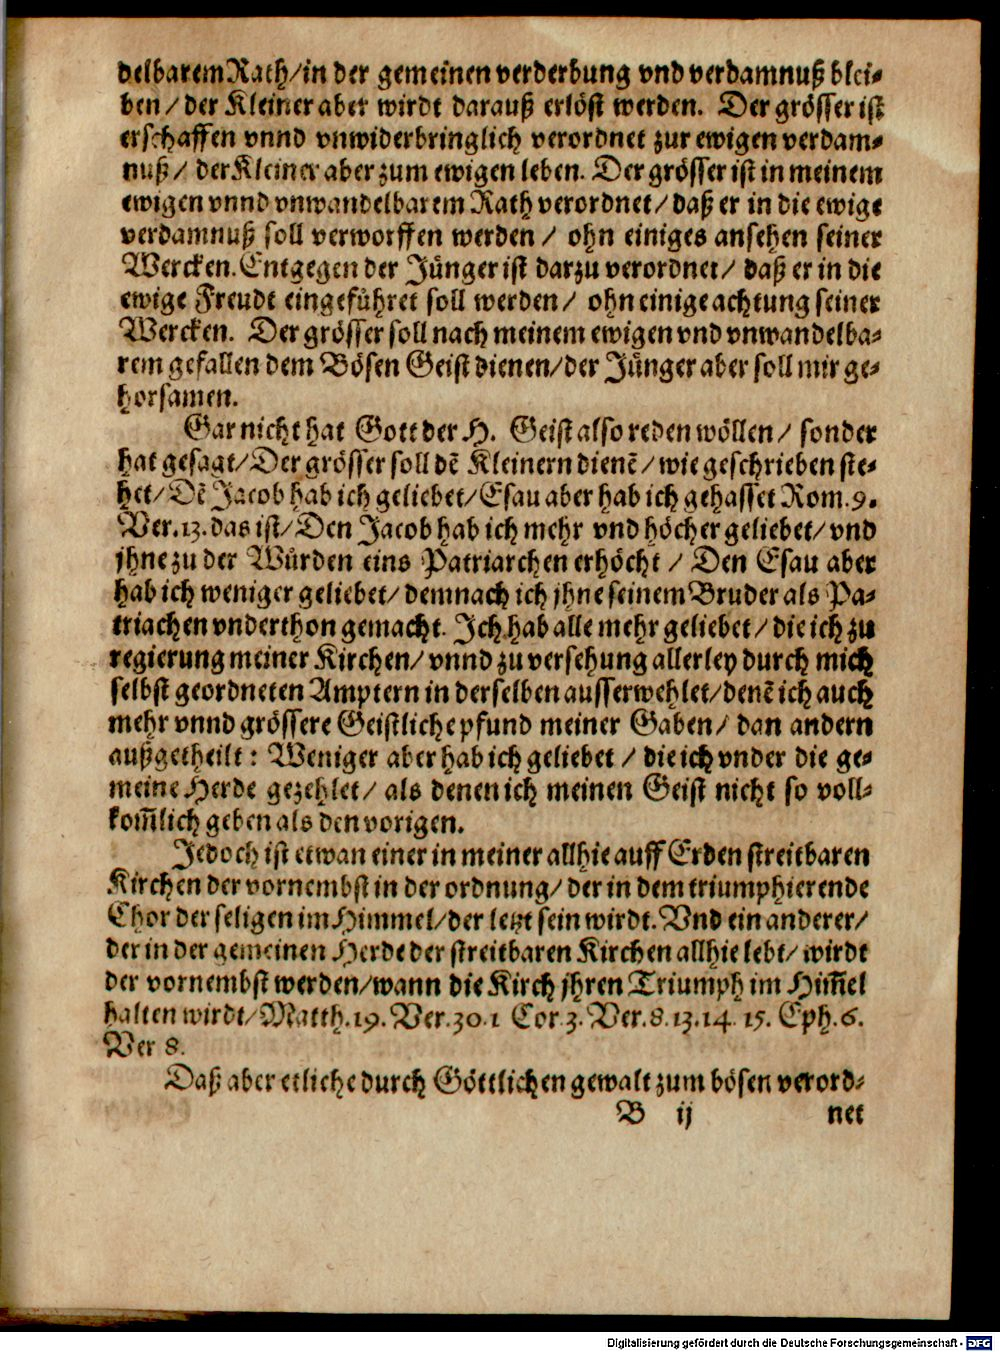 delbarem Rath/in der gemeinen verderbung vnd verdamnuß blei-
ben/der Kleiner aber wirdt darauß erlöst werden. Der grösser ist
erschaffen vnnd vnwiderbringlich verordnet zur ewigen verdam-
nuß/ der Kleiner aber zum ewigen leben. Der grösser ist in meinem
ewigen vnnd vnwandelbarem Rath verordnet/daß er in die ewige
verdamnuß soll verworffen werden/ ohn einiges ansehen seiner
Wercken. Entgegen der Jünger ist darzu verordnet/ daß er in die
ewige Freudt eingeführet soll werden/ ohn einige achtung seiner
Wercken. Der grösser soll nach meinem ewigen vnd vnwandelba-
rem gefallen dem Bösen Geist dienen/der Jünger aber soll mir ge-
horsamen.
Gar nicht hat Gott der H. Geist also reden wöllen/ sonder
hat gesagt/Der grösser soll dē Kleinern dienē/wie geschrieben ste-
het/Dē Jacob hab ich geliebet/Esau aber hab ich gehasset Rom.9.
Ver.13.das ist/Den Jacob hab ich mehr vnd höcher geliebet/vnd
jhne zu der Würden eins Patriarchen erhöcht/ Den Esau aber
hab ich weniger geliebet/demnach ich jhne seinem Bruder als Pa-
triachen vnderthon gemacht. Ich hab alle mehr geliebet/die ich zu
regierung meiner Kirchen/vnnd zu versehung allerley durch mich
selbst geordneten Amptern in derselben ausserwehlet/denē ich auch
mehr vnnd grössere Geistliche pfund meiner Gaben/ dan andern
außgetheilt: Weniger aber hab ich geliebet/ die ich vnder die ge-
meine Herde gezehlet/ als denen ich meinen Geist nicht so voll-
kom̄lich geben als den vorigen.
Jedoch ist etwan einer in meiner allhie auff Erden streitbaren
Kirchen der vornembst in der ordnung/der in dem triumphierende
Chor der seligen im Himmel/der letzt sein wirdt. Vnd ein anderer/
der in der gemeinen Herde der streitbaren Kirchen allhie lebt/wirdt
der vornembst werden/wann die Kirch jhren Triumph im Him̄el
halten wirdt/Matth.19.Ver.30.1 Cor.3.Ver.8.13.14 15. Eph.6.
Ver 8.
Daß aber etliche durch Göttlichen gewalt zum bösen verord-
B ij net
Digitalisierung gefördert durch die Deutsche Forschungsgemeinschaft - DFG